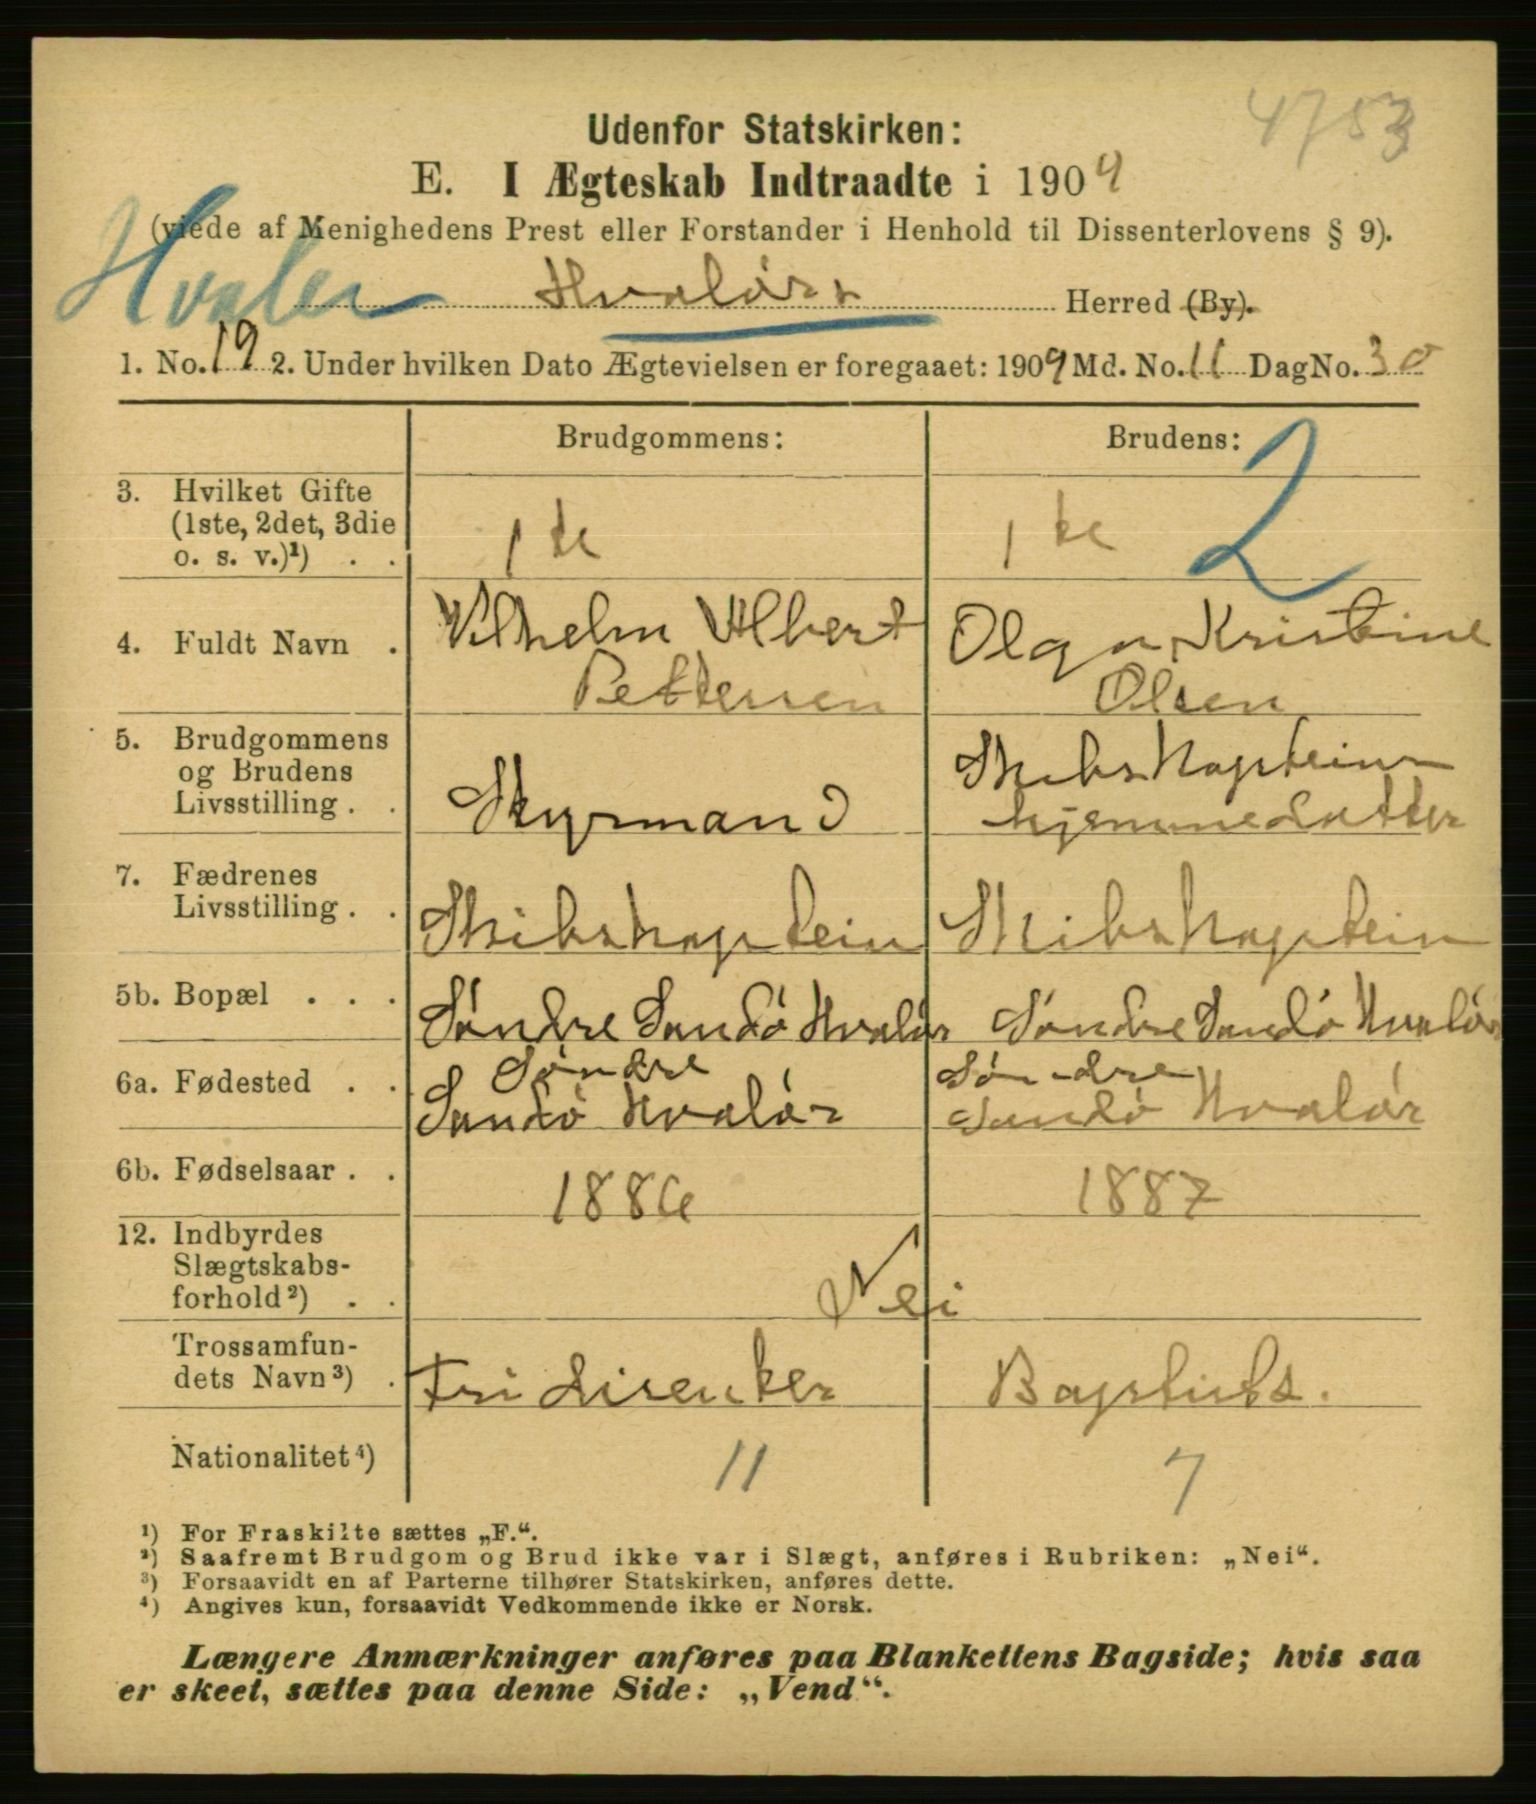 4753
Udenfor Statskirken:
E. I Ægteskab Indtraadte i 1909
(viede af Menighedens Prest eller Forstander i Henhold til Dissenterlovens § 9).
Hvaler Hvalörs Herred (By).
1. No. 19 2. Under hvilken Dato Ægtevielsen er foregaaet: 1909 Md. No. 11 Dag No. 30
Brudgommens: Brudens: 2
3. Hvilket Gifte
(1ste, 2det, 3die
o. s. v.)¹) . . 1te 1te
4. Fuldt Navn . Vilhelm Albert Olga Kristine
Pettersen Olsen
5. Brudgommens
og Brudens
Livsstilling . . Styrmand Skibskaptein
hjemmedatter
7. Fædrenes
Livsstilling . . Skibskaptein Skibskaptein
5b. Bopæl . . . Söndre Sandö Hvalör Söndre Sandö Hvalör
6a. Fødested . . Söndre Söndre
Sandö Hvalör Sandö Hvalör
6b. Fødselsaar . . 1886 1887
12. Indbyrdes
Slægtskabs-
forhold²) . . Nei
Trossamfun-
dets Navn³) . Fridisenter Baptists.
Nationalitet⁴) 11 7
¹) For Fraskilte sættes „F.“.
²) Saafremt Brudgom og Brud ikke var i Slægt, anføres i Rubriken: „Nei“.
³) Forsaavidt en af Parterne tilhører Statskirken, anføres dette.
⁴) Angives kun, forsaavidt Vedkommende ikke er Norsk.
Længere Anmærkninger anføres paa Blankettens Bagside; hvis saa
er skeet, sættes paa denne Side: „Vend“.